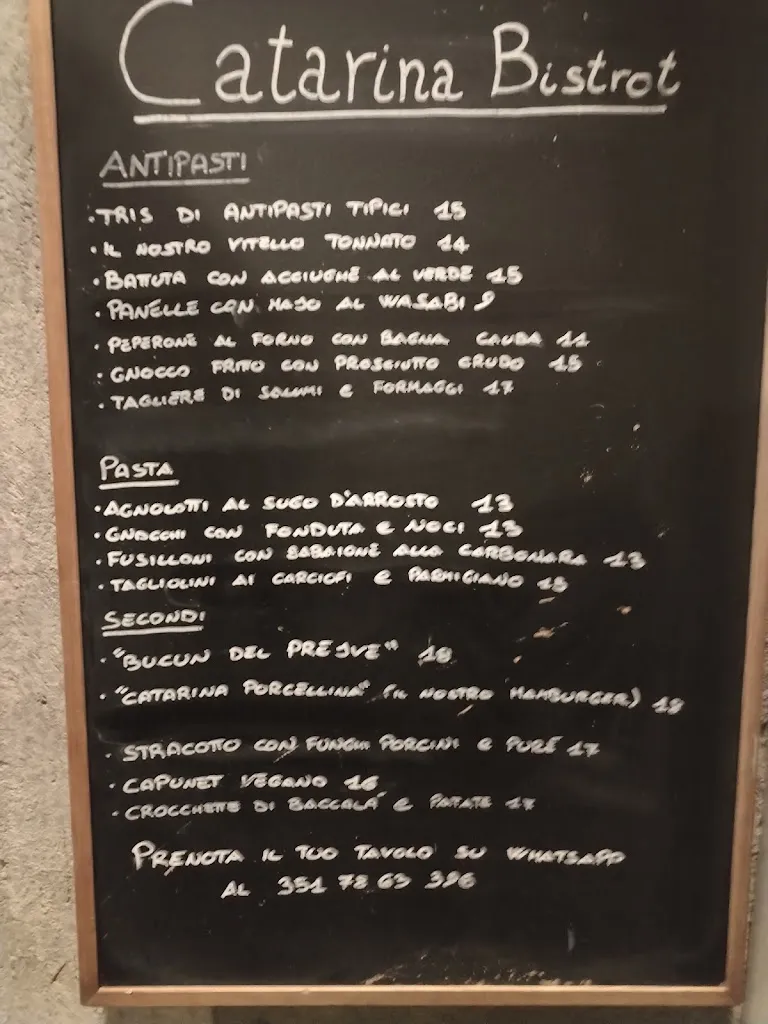 Catarina Bistrot
ANTIPASTI
• TRIS DI ANTIPASTI TIPICI 15
• IL NOSTRO VITELLO TONNATO 14
• BATTUTA CON ACCIUGHE AL VERDE 15
• PANELLE CON MAJO AL WASABI 9
• PEPERONE AL FORNO CON BAGNA CAUDA 11
• GNOCCO FRITTO CON PROSCIUTTO CRUDO 15
• TAGLIERE DI SALUMI E FORMAGGI 17
PASTA
• AGNOLOTTI AL SUGO D'ARROSTO 13
• GNOCCHI CON FONDUTA E NOCI 13
• FUSILLONI CON ZABAIONE ALLA CARBONARA 13
• TAGLIOLINI AI CARCIOFI E PARMIGIANO
SECONDI
• "BUCUN DEL PREJVE" 18
• "CATARINA PORCELLINA" (IL NOSTRO HAMBURGER) 18
• STRACOTTO CON FUNGHI PORCINI E PURÈ 17
• CAPUNET VEGANO 16
• CROCCHETTE DI BACCALA' E PATATE 17
PRENOTA IL TUO TAVOLO SU WHATSAPP
AL 351 78 69 396